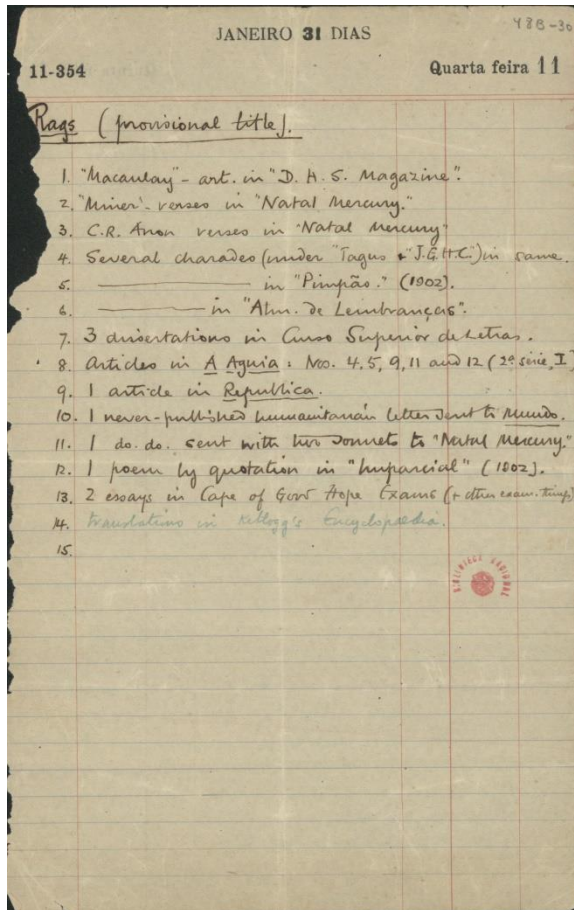 48B-30
JANEIRO 31 DIAS
11-354 Quarta feira 11
Rags (provisional title).
1. "Macaulay" - art. in "D. H. S. Magazine".
2. "Miner" - verses in "Natal Mercury."
3. C.R. Anon verses in "Natal Mercury"
4. Several charades (under "Tagus" & "J.G.H.C.") in same.
5. ———— in "Pimpão." (1902).
6. ———— in "Alm. de Lembranças".
7. 3 dissertations in Curso Superior de Letras.
8. Articles in A Aguia: Nos. 4, 5, 9, 11 and 12 (2ª série, I
9. 1 article in Republica.
10. 1 never-published humanitarian letter sent to Mundo.
11. 1 do. do. sent with two sonnets to "Natal Mercury."
12. 1 poem by quotation in "Imparcial" (1902).
13. 2 essays in Cape of Good Hope Exams (+ other exam. things)
14. translations in Kellogg's Encyclopaedia.
15.
BIBLIOTECA NACIONAL